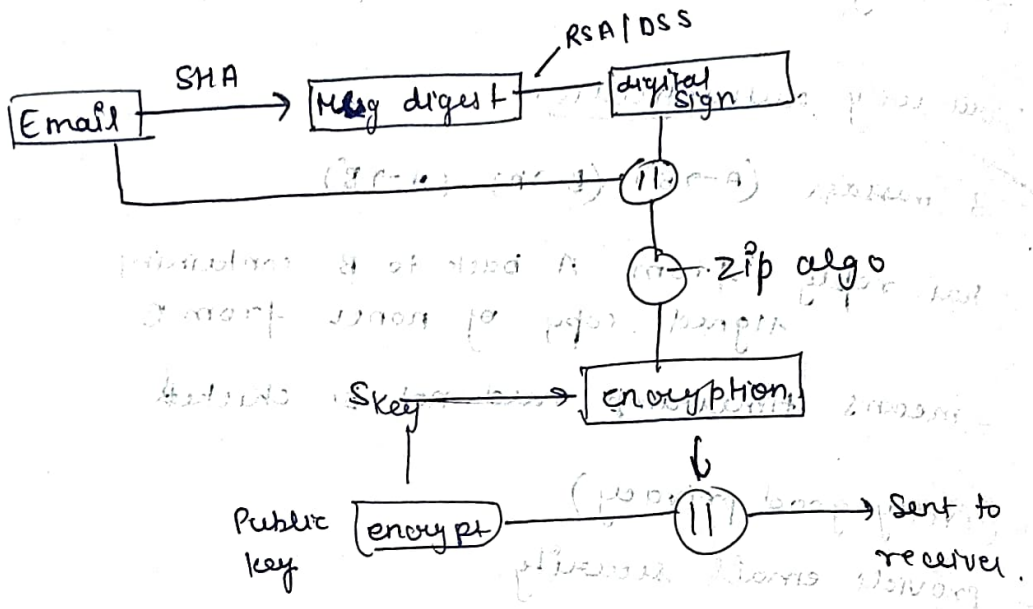 RSA/DSS
SHA
Email
Msg digest
digital
sign
||
zip algo
Skey
encryption
Public
key
encrypt
||
Sent to
receiver.